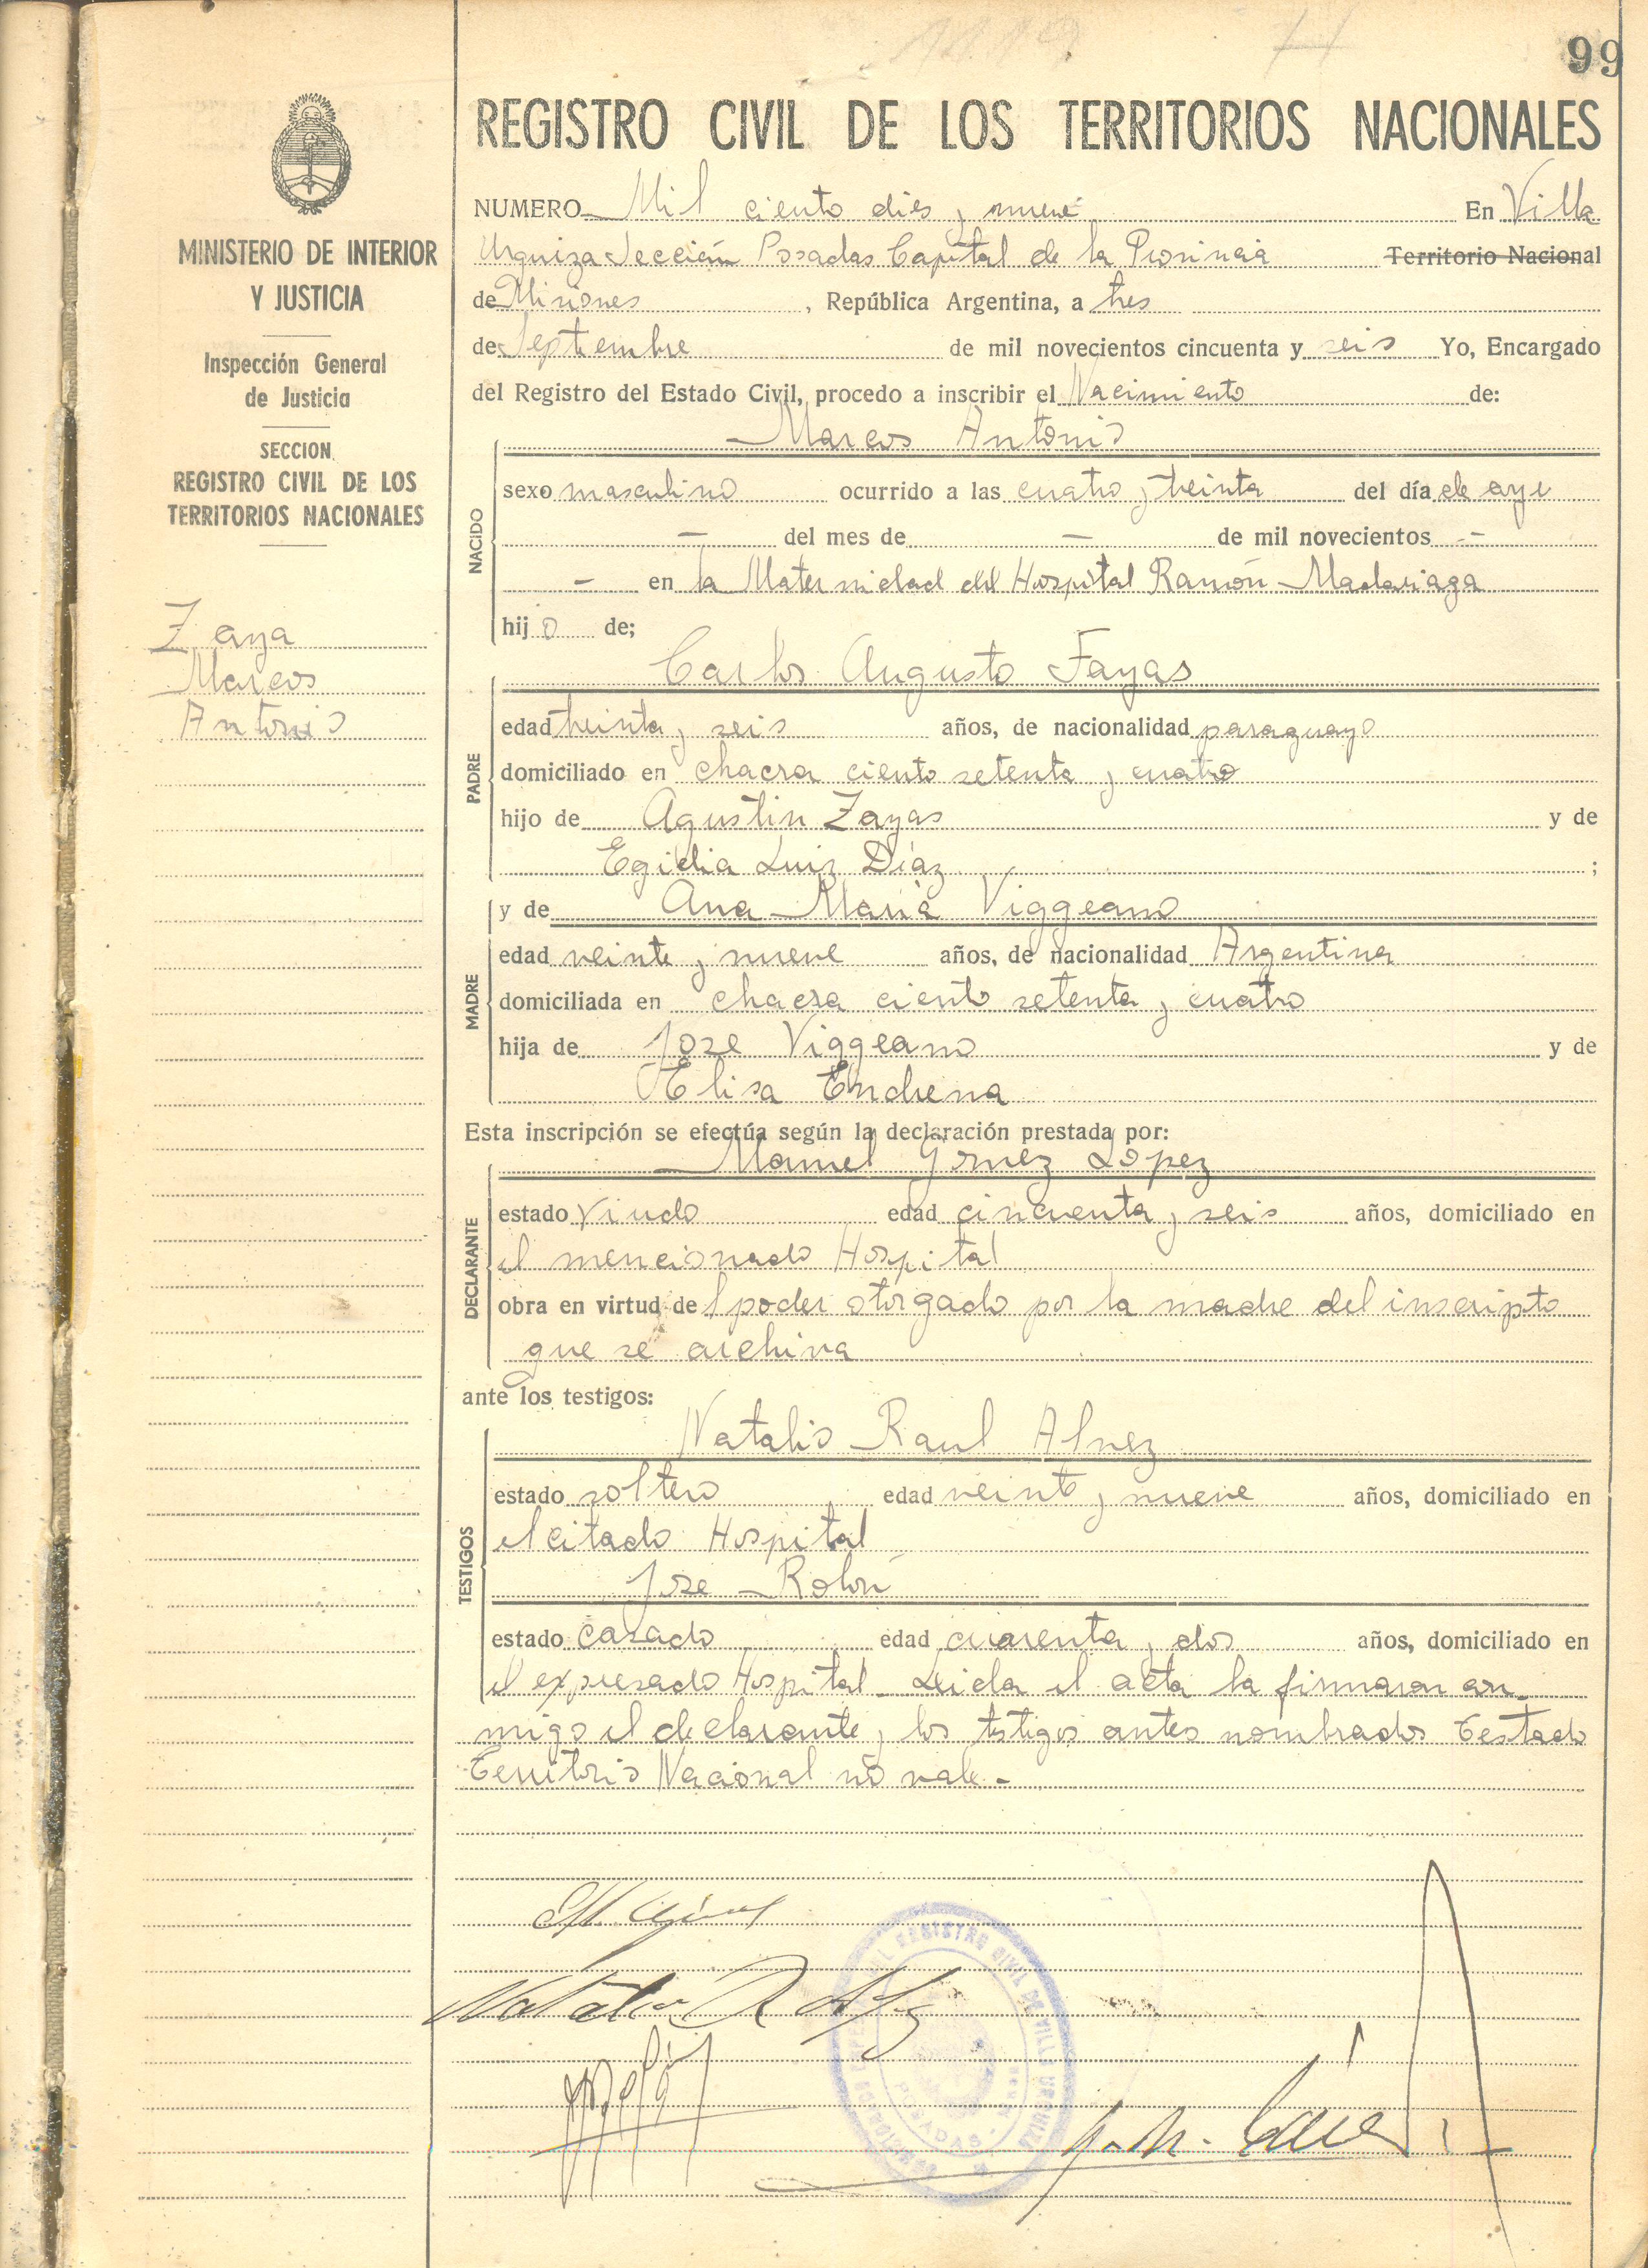 99
REGISTRO CIVIL DE LOS TERRITORIOS NACIONALES
MINISTERIO DE INTERIOR
Y JUSTICIA
Inspección General
de Justicia
SECCION
REGISTRO CIVIL DE LOS
TERRITORIOS NACIONALES
Zaya
Marcos
Antonio
NUMERO Mil ciento dies y nueve En Villa
Urquiza Sección Posadas Capital de la Provincia Territorio Nacional
de Misiones, República Argentina, a tres
de Septiembre de mil novecientos cincuenta y seis Yo, Encargado
del Registro del Estado Civil, procedo a inscribir el Nacimiento de:
Marcos Antonio
NACIDO
sexo masculino ocurrido a las cuatro y treinta del día de aye
— del mes de — de mil novecientos —
— en la Maternidad del Hospital Ramón Madariaga
hijo de;
PADRE
Carlos Augusto Fayas
edad treinta y seis años, de nacionalidad paraguayo
domiciliado en chacra ciento setenta y cuatro
hijo de Agustin Zayas y de
Egidia Luiz Díaz ;
MADRE
y de Ana María Viggeano
edad veinte y nueve años, de nacionalidad Argentina
domiciliada en chacra ciento setenta y cuatro
hija de Jose Viggeano y de
Elisa Enchena
Esta inscripción se efectúa según la declaración prestada por:
DECLARANTE
Manuel Gomez Lopez
estado Viudo edad cincuenta y seis años, domiciliado en
el mencionado Hospital
obra en virtud del poder otorgado por la madre del inscripto
que se archiva
ante los testigos:
TESTIGOS
Natalio Raul Alvez
estado soltero edad veinte y nueve años, domiciliado en
el citado Hospital
Jose Rolon
estado casado edad cuarenta y dos años, domiciliado en
el expresado Hospital. Leida el acta la firmaron con
migo el declarante y los testigos antes nombrados Testado
Territorio Nacional no vale.-
REGISTRO CIVIL DE VILLA URQUIZA
POSADAS